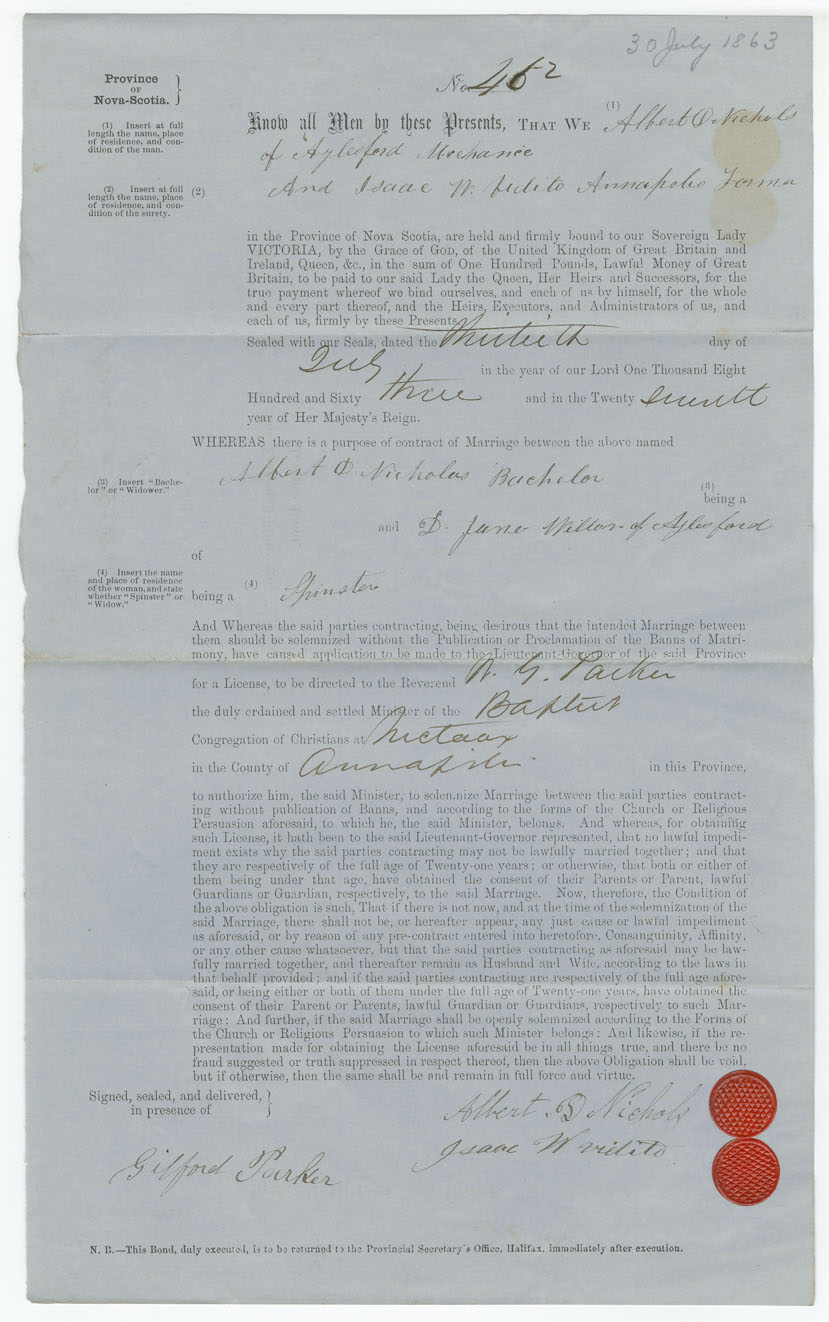 30 July 1863
Province
OF
Nova-Scotia.
No. 462
(1) Insert at full
length the name, place
of residence, and con-
dition of the man.
Know all Men by these Presents, THAT WE (1) Albert D Nichols
of Aylesford Mechanic
(2) Insert at full
length the name, place
of residence, and con-
dition of the surety.
(2) And Isaac W. Vidito Annapolis
in the Province of Nova Scotia, are held and firmly bound to our Sovereign Lady
VICTORIA, by the Grace of GOD, of the United Kingdom of Great Britain and
Ireland, Queen, &c., in the sum of One Hundred Pounds, Lawful Money of Great
Britain, to be paid to our said Lady the Queen, Her Heirs and Successors, for the
true payment whereof we bind ourselves, and each of us by himself, for the whole
and every part thereof, and the Heirs, Executors, and Administrators of us, and
each of us, firmly by these Presents.
Sealed with our Seals, dated the thirtieth day of
July in the year of our Lord One Thousand Eight
Hundred and Sixty three and in the Twenty
year of Her Majesty's Reign.
WHEREAS there is a purpose of contract of Marriage between the above named
(3) Insert "Bache-
lor" or "Widower."
Albert D. Nicholas Bachelor
(3)
being a
and D. Jane of Aylesford
of
(4) Insert the name
and place of residence
of the woman, and state
whether "Spinster" or
"Widow."
being a (4) Spinster
And Whereas the said parties contracting, being desirous that the intended Marriage between
them should be solemnized without the Publication or Proclamation of the Banns of Matri-
mony, have caused application to be made to the Lieutenant-Governor of the said Province
for a License, to be directed to the Reverend W. G. Parker
the duly ordained and settled Minister of the Baptist
Congregation of Christians at Nictaux
in the County of Annapolis in this Province,
to authorize him, the said Minister, to solemnize Marriage between the said parties contract-
ing without publication of Banns, and according to the forms of the Church or Religious
Persuasion aforesaid, to which he, the said Minister, belongs. And whereas, for obtaining
such License, it hath been to the said Lieutenant-Governor represented, that no lawful impedi-
ment exists why the said parties contracting may not be lawfully married together; and that
they are respectively of the full age of Twenty-one years; or otherwise, that both or either of
them being under that age, have obtained the consent of their Parents or Parent, lawful
Guardians or Guardian, respectively, to the said Marriage. Now, therefore, the Condition of
the above obligation is such, That if there is not now, and at the time of the solemnization of the
said Marriage, there shall not be, or hereafter appear, any just cause or lawful impediment
as aforesaid, or by reason of any pre-contract entered into heretofore, Consanguinity, Affinity,
or any other cause whatsoever, but that the said parties contracting as aforesaid may be law-
fully married together, and thereafter remain as Husband and Wife, according to the laws in
that behalf provided; and if the said parties contracting are respectively of the full age afore-
said, or being either or both of them under the full age of Twenty-one years, have obtained the
consent of their Parent or Parents, lawful Guardian or Guardians, respectively to such Mar-
riage: And further, if the said Marriage shall be openly solemnized according to the Forms of
the Church or Religious Persuasion to which such Minister belongs: And likewise, if the re-
presentation made for obtaining the License aforesaid be in all things true, and there be no
fraud suggested or truth suppressed in respect thereof, then the above Obligation shall be void,
but if otherwise, then the same shall be and remain in full force and virtue.
Signed, sealed, and delivered,
in presence of
Albert D Nichols
Isaac W Vidito
Gilford Parker
N. B.—This Bond, duly executed, is to be returned to the Provincial Secretary's Office, Halifax, immediately after execution.